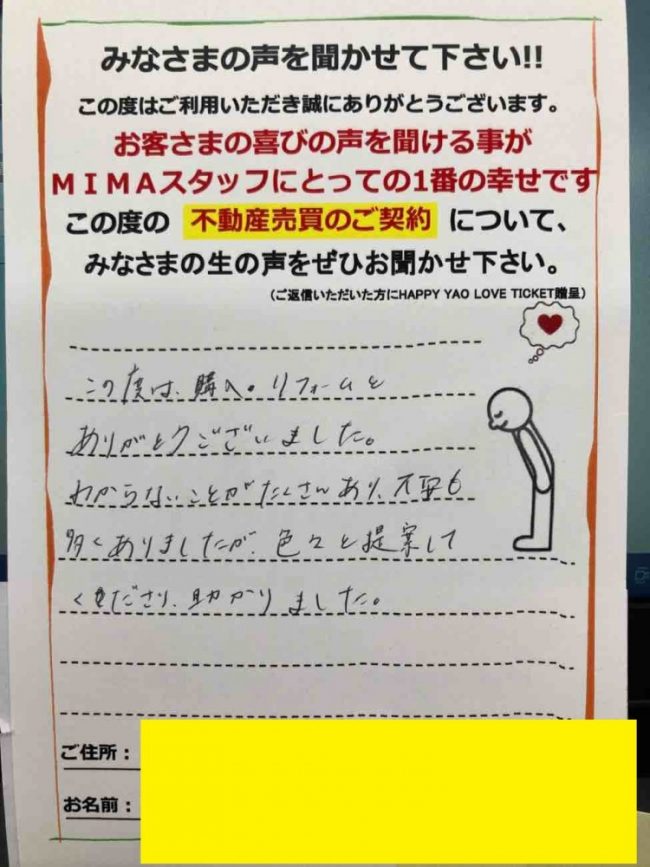 みなさまの声を聞かせて下さい!!
この度はご利用いただき誠にありがとうございます。
お客さまの喜びの声を聞ける事が
MIMAスタッフにとっての1番の幸せです
この度の 不動産売買のご契約 について、
みなさまの生の声をぜひお聞かせ下さい。
（ご返信いただいた方にHAPPY YAO LOVE TICKET贈呈）
この度は、購入。リフォームと
ありがとうございました。
わからないことがたくさんあり、不安も
多くありましたが、色々と提案して
くださり、助かりました。
ご住所：
お名前：